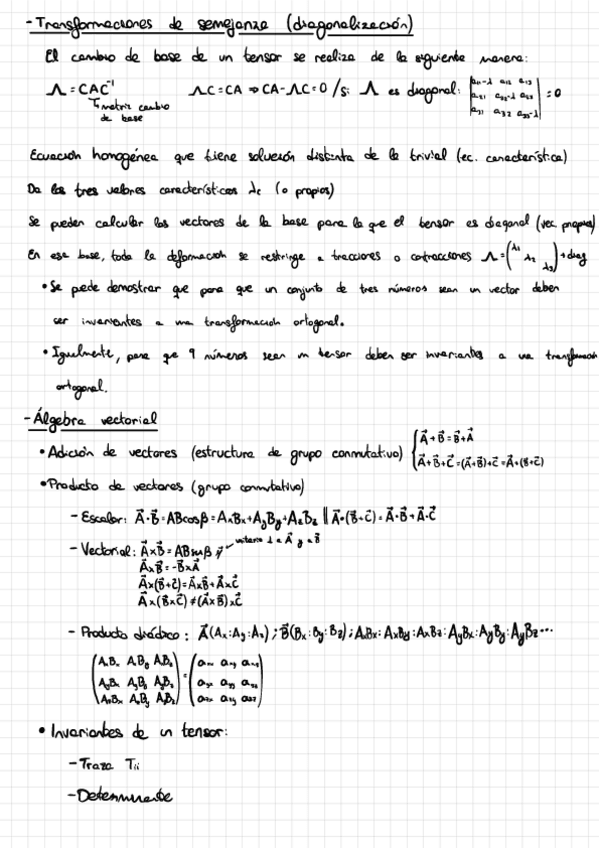 - Transformaciones de semejanza (diagonalización)
El cambio de base de un tensor se realiza de la siguiente manera:
Λ = CAC⁻¹ ΛC = CA ⇒ CA - ΛC = 0 / si Λ es diagonal: |a₁₁-λ a₁₂ a₁₃| = 0
|a₂₁ a₂₂-λ a₂₃|
|a₃₁ a₃₂ a₃₃-λ|
matriz cambio
de base
Ecuación homogénea que tiene solución distinta de la trivial (ec. característica)
Da los tres valores característicos λc (o propios)
Se pueden calcular los vectores de la base para la que el tensor es diagonal (vec. propios)
En esa base, toda la deformación se restringe a tracciones o contracciones Λ = (λ₁ λ₂ λ₃) → diag
• Se puede demostrar que para que un conjunto de tres números sean un vector deben
ser invariantes a una transformación ortogonal.
• Igualmente, para que 9 números sean un tensor deben ser invariantes a una transformación
ortogonal.
- Álgebra vectorial
• Adición de vectores (estructura de grupo conmutativo) { A⃗ + B⃗ = B⃗ + A⃗
A⃗ + B⃗ + C⃗ = (A⃗ + B⃗) + C⃗ = A⃗ + (B⃗ + C⃗)
• Producto de vectores (grupo conmutativo)
- Escalar: A⃗ · B⃗ = AB cosβ = AxBx + AyBy + AzBz || A⃗ · (B⃗ + C⃗) = A⃗ · B⃗ + A⃗ · C⃗
- Vectorial: A⃗ x B⃗ = AB senβ → unitario ⊥ a A⃗ y a B⃗
A⃗ x B⃗ = -B⃗ x A⃗
A⃗ x (B⃗ + C⃗) = A⃗ x B⃗ + A⃗ x C⃗
A⃗ x (B⃗ x C⃗) ≠ (A⃗ x B⃗) x C⃗
- Producto diádico: A⃗ (Ax; Ay; Az); B⃗ (Bx; By; Bz); AxBx; AxBy; AxBz; AyBx; AyBy; AyBz...
(AxBx AxBy AxBz) = (axx axy axz)
(AyBx AyBy AyBz) (ayx ayy ayz)
(AzBx AzBy AzBz) (azx azy azz)
• Invariantes de un tensor:
- Traza Tii
- Determinante